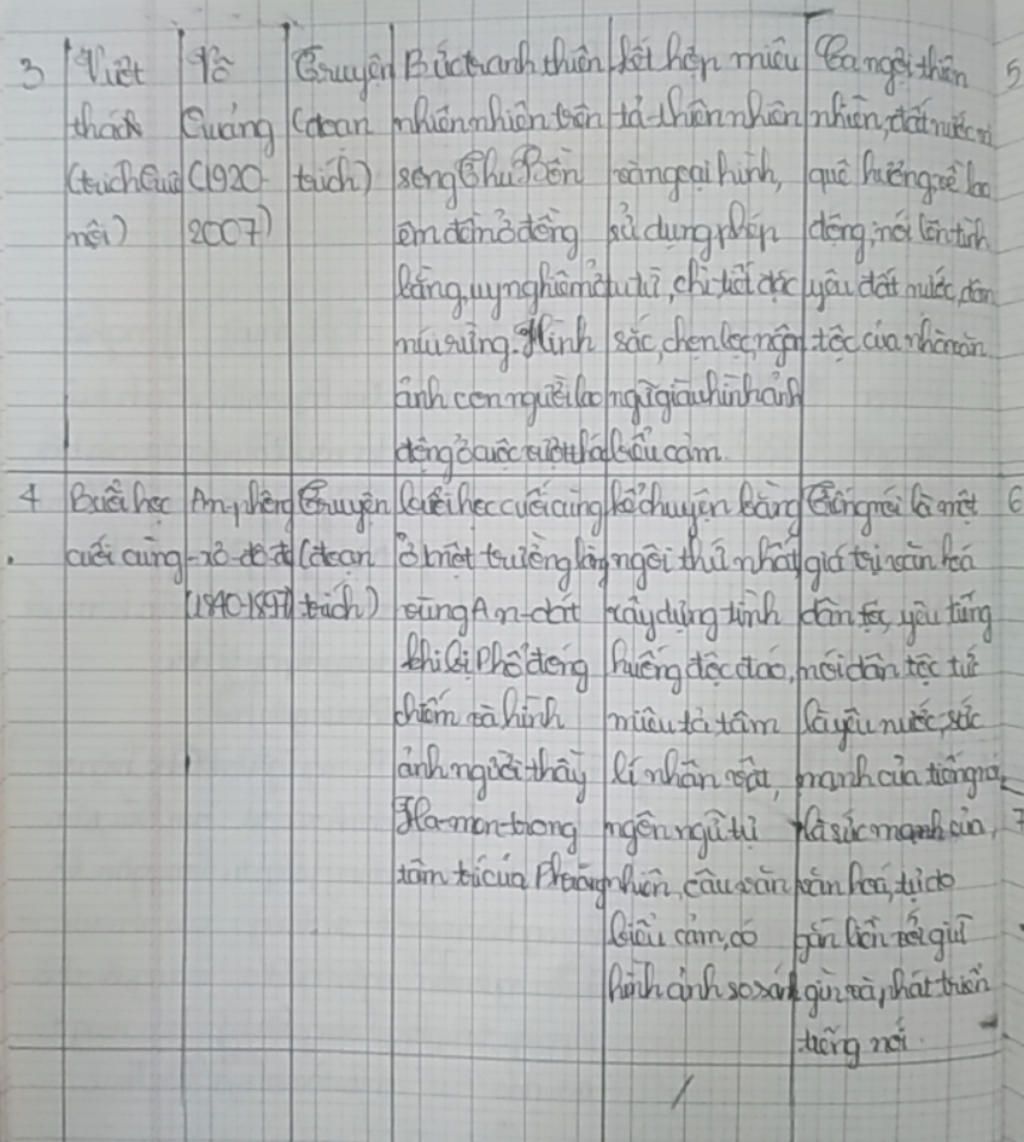 3 Vượt Võ Truyện Bức tranh thiên Kết hợp miêu Ca ngợi thiên 5
thác Quảng (đoạn nhiên nhiên trên tả thiên nhiên nhiên, đất nước
(trích Quê (1920- trích) sông Thu Bồn và ngoại hình, quê hương, về lao
nội) 2007) êm đềm ở đồng sử dụng phép động, nói lên tình
bằng, uy nghiêm ở tu từ, chi tiết đặc yêu đất nước, dân
núi rừng. Hình sắc, chọn lọc, ngôn tộc của nhà văn
ảnh con người lao ngữ giàu hình ảnh
động ở cuộc vượt thác biểu cảm.
4 Buổi học An-phông Truyện Buổi học cuối cùng Kể chuyện bằng Tiếng nói là một 6
cuối cùng -xơ-đô-đê (đoạn ở một trường làng ngôi thứ nhất giá trị văn hoá
(1840-1897) trích) vùng An-dát xây dựng tình dân tộc, yêu tiếng
khi bị Phổ đóng huống độc đáo, nói dân tộc tức
chiếm và hình miêu tả tâm là yêu nước, sức
ảnh người thầy lí nhân vật, mạnh của tiếng nói
Ha-men trong ngôn ngữ tự là sức mạnh của 7
tâm trí của Phrăng nhiên, câu văn văn hoá, tự do
biểu cảm, có gắn liền với giữ
hình ảnh so sánh gìn và phát triển
tiếng nói.